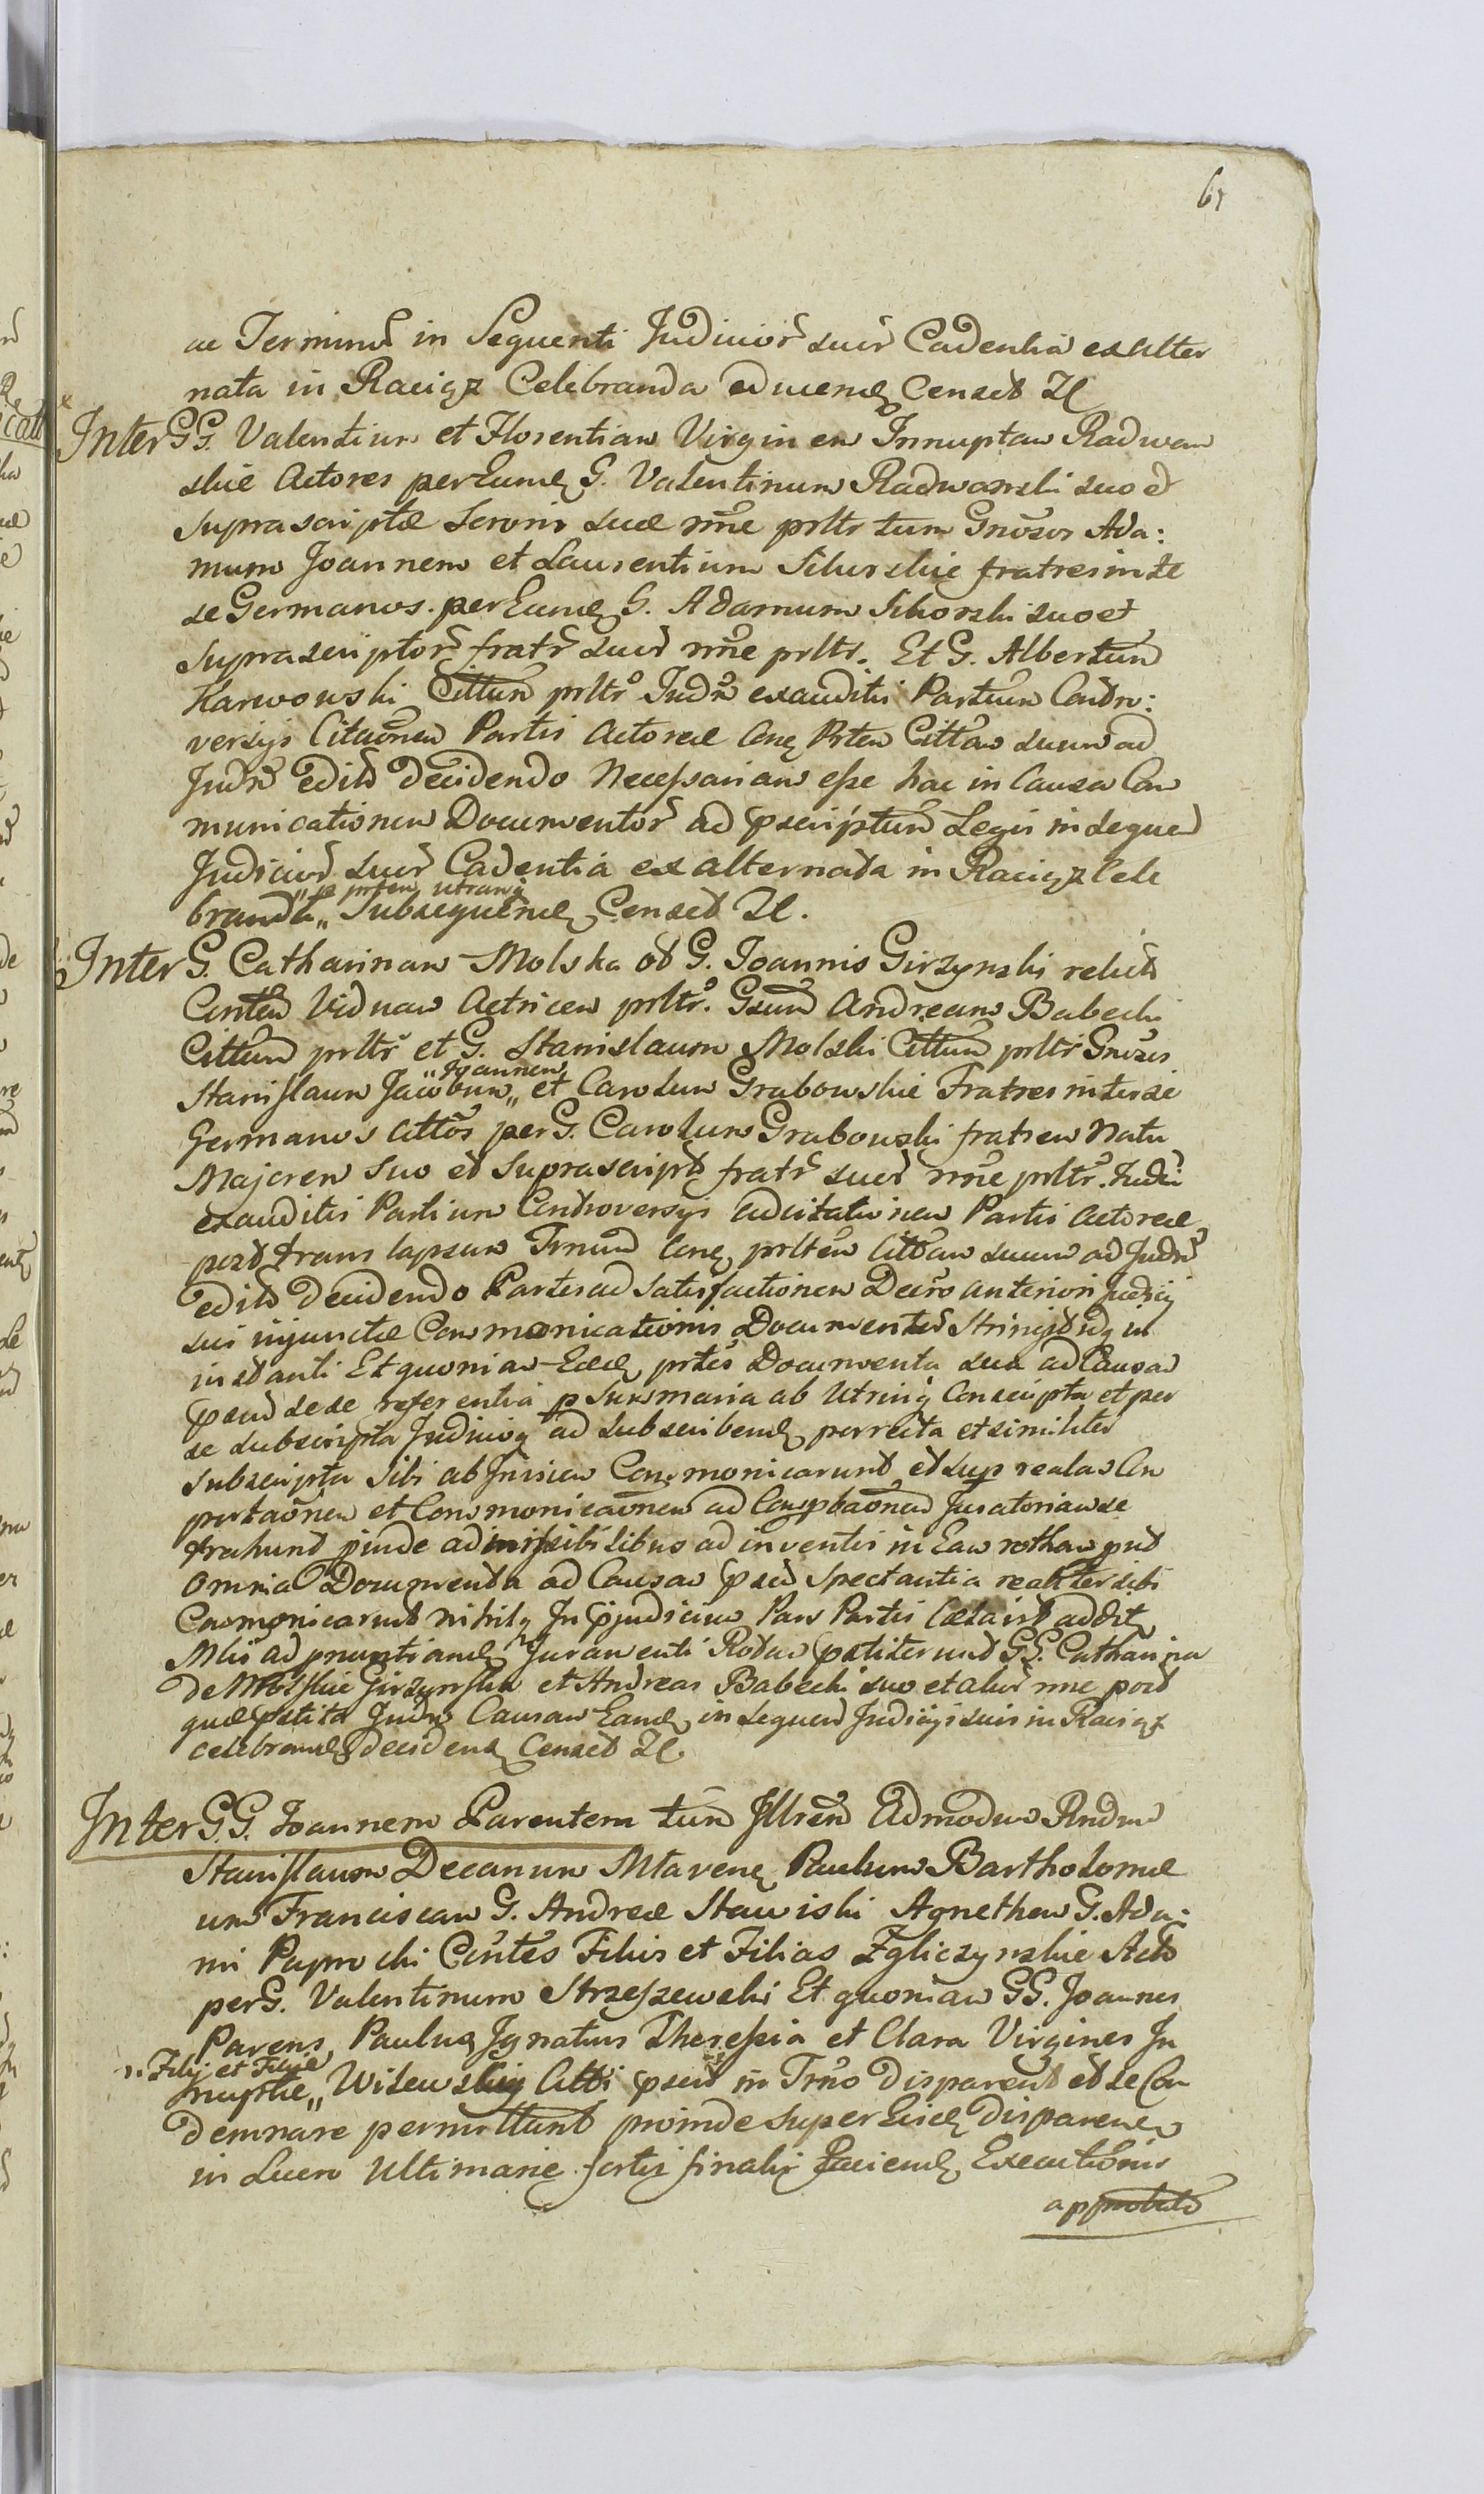 61
ac Terminū in Sequenti Judicior suor Cadentia ex alter
nata in Raciąż Celebranda advenien Censet Zl
Inter GG. Valentium et Florentiam Virginem Innuptam Radwan
skie Actores per Eumd G. Valentinum Radwanski suo et
supra scriptæ Sororis suæ nme prltr tum Gnōsos Ada:
mum Joannem et Laurentium Sikorskie fratres inte
se Germanos. per Eumd G. Adamum Sikorski suo et
suprascriptor fratr suor nme prltr. Et G. Albertum
Karwowski Cittum prltr Judm exauditis Partium Contro:
versijs Citaōnem Partis Actoreæ Cnq Prtem Cittam suum ad
Judm edito decidendo Necessariam esse hac in Causa Com
municationem Documentor ad pscriptum Legis in sequen
Judicior suor Cadentia ex alternata in Raciąż Cele
branda „ p prtem utramq
„ Subsequend Censet Zl.
Inter G. Catharinam Molska ol G. Joannis Girzynski relict
Contem Viduam Actricem prltr. Gsum Andream Babecki
Cittum prltr et G. Stanislaum Molski Cittum prltr Gnosos
„ Joannem
Stanislaum Jacobum „ et Carolum Grabowskie Fratres inter se
Germanos Cittos per G. Carolum Grabowski fratrem Natu
Majorem suo et suprascript fratr suor nme prltr. Judm
exauditis Partium Controversijs adcitationem Partis Actoreæ
post translapsum Trnum Cnq prltem Cittam suum ad Judm
edito decidendo Partes ad satisfactionem Decro anteriori Judicij
sui injunctæ Commonicationis Documentor Stringit idq in
instanti Et quoniam Eæd prtes Documenta sua ad Causam
psen sese referentia p Summaria ab Utrinq Conscripta et per
se subscripta Judicioq ad subscribend porrecta et similiter
subscripta sibi ab Invicem Commonicarunt et sup realas Com
portaōnem et Commonicaōnem ad Comptaōnem Juratoriam se
trahunt pinde admissibilibus ad inventis in Eam rotham put
Omnia Documenta ad Causam psen Spectantia realiter sibi
Commonicarunt nihilq In pjudicium Pars Partis Celavit addit
Mlis ad pnuntiand Juramenti Rotam pstiterunt GG. Catharina
de Molskie Girzynska et Andreas Babecki suo et alior nne post
quæ pstita Judm Causam Eand in sequen Judicijs suis in Raciąż
celebrand decidend Censet Zl.
Inter GG. Joannem Parentem tum Illrem Admodum Rndum
Stanislaum Decanum Mlavenq Paulum Bartholomæ
um Franciscam G. Andreæ Stawiski Agnetham G. Ada:
mi Paprocki Contes Filios et Filias Zgliczynskie Acto
per G. Valentinum Strzeszewski Et quoniam GG. Joannes
Parens, Paulus Ignatius Theressia et Clara Virgines In
„ Filij et Filiæ
nuptæ „ Wilewskiij Citti psen in Trno disparent et se Con
demnare permittunt proinde super Eisd disparend
in Lucro Ultimarie sortis finalis faciend Executionis
approbato